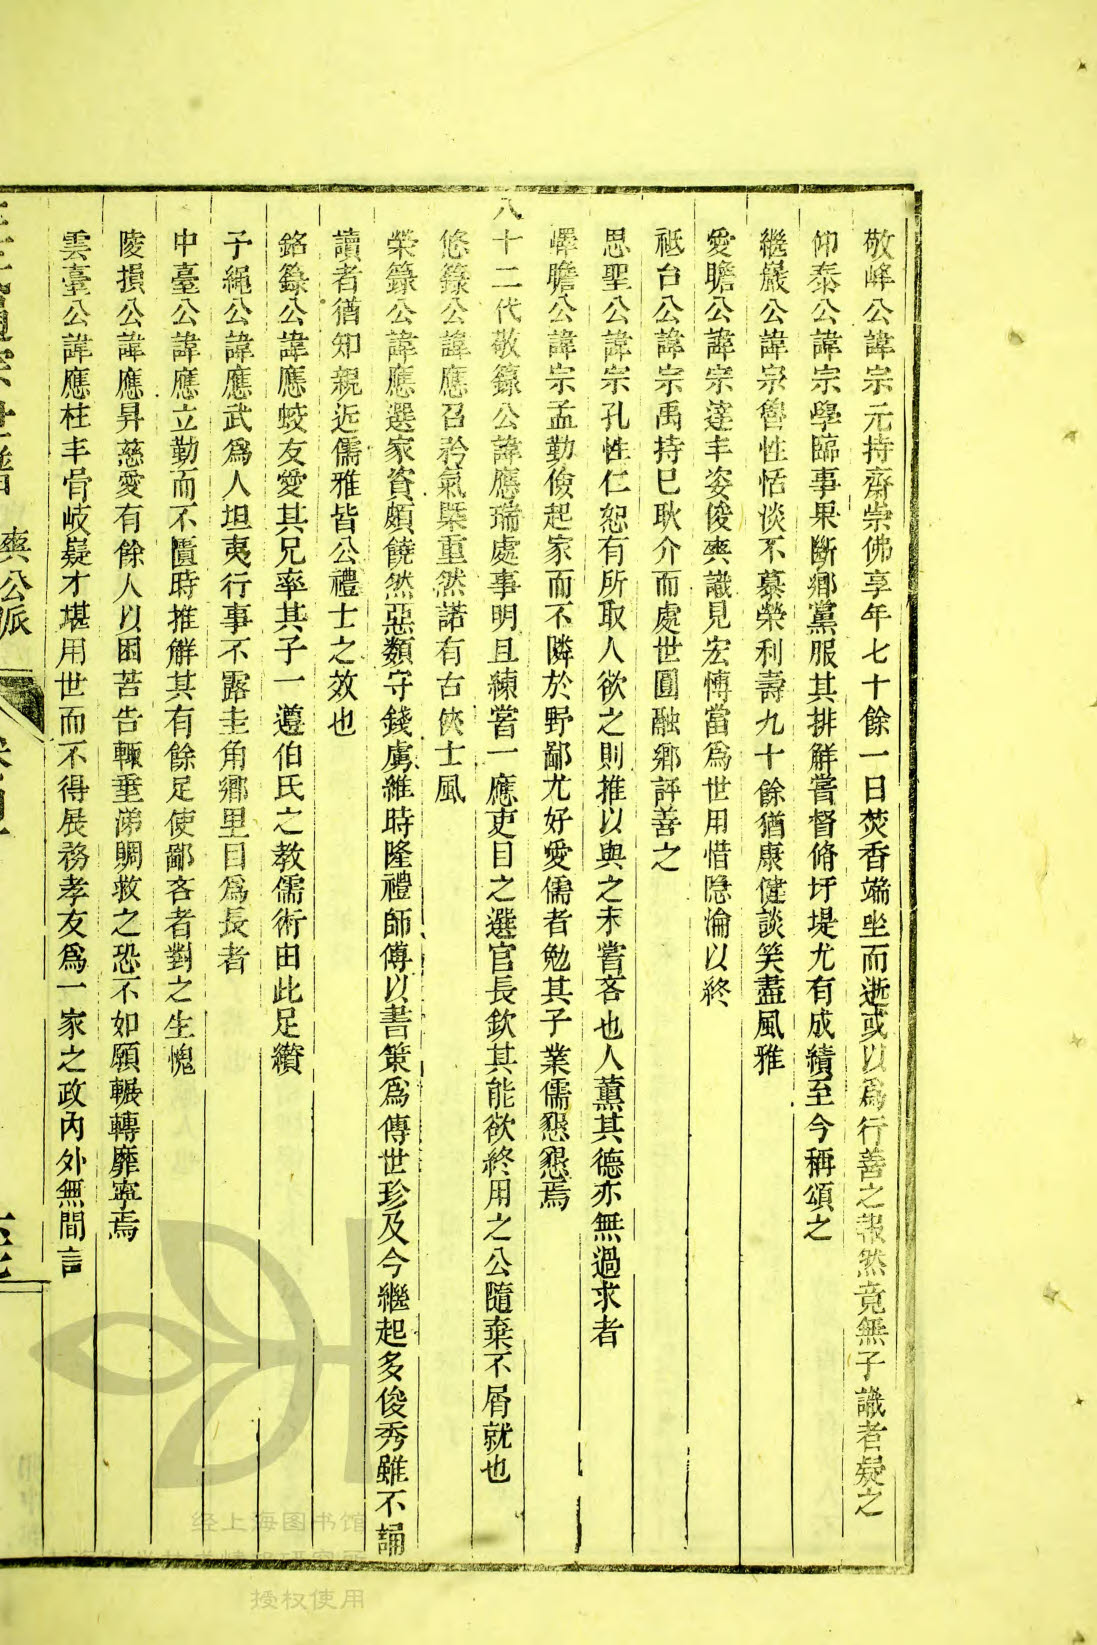 敬峰公諱宗元持齋崇佛享年七十餘一日焚香端坐而逝或以爲行善之報然竟無子識者疑之
仰泰公諱宗學臨事果斷鄉黨服其排解嘗督脩圩堤尤有成績至今稱頌之
繼巖公諱宗魯性恬淡不慕榮利壽九十餘猶康健談笑盡風雅
愛瞻公諱宗蓬丰姿俊爽識見宏愽當爲世用惜隐淪以終
祗台公諱宗禹持已耿介而處世圓融鄉評善之
思聖公諱宗孔性仁恕有所取人欲之則推以與之未嘗吝也人薰其德亦無過求者
嶧瞻公諱宗孟勤儉起家而不隣於野鄙尤好愛儒者勉其子業儒懇懇焉
八十二代敬籙公諱應瑞處事明且練嘗一應吏目之選官長欽其能欲終用之公隨棄不屑就也
悠籙公諱應召矜氣槩重然諾有古俠士風
榮籙公諱應選家資頗饒然惡類守錢虜維時隆禮師傅以書策爲傳世珍及今繼起多俊秀雖不誦
讀者猶知親近儒雅皆公禮士之效也
銘籙公諱應蛟友愛其兄率其子一遵伯氏之教儒術由此足纘
子繩公諱應武爲人坦夷行事不露圭角鄉里目爲長者
中臺公諱應立勤而不匱時推解其有餘足使鄙吝者對之生愧
陵損公諱應昇慈愛有餘人以困苦告輒垂涕賙救之恐不如願輾轉靡寧焉
雲臺公諱應柱丰骨岐嶷才堪用世而不得展務孝友爲一家之政內外無間言
爽公派
经上海图书馆
授权使用